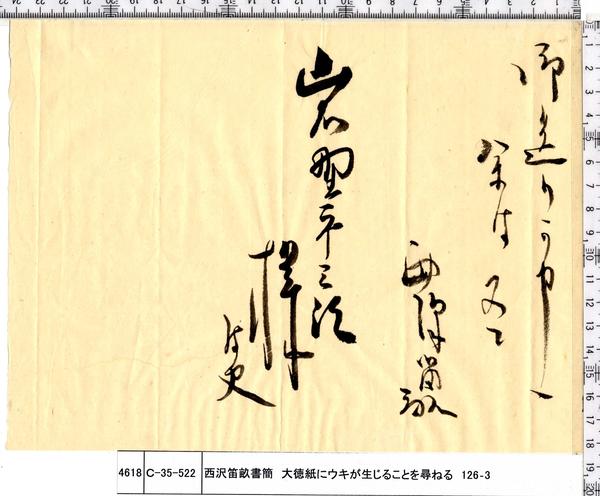 御送り可申
西澤笛畝
岩野平三郎
様
侍史
4618 C-35-522 西沢笛畝書簡 大徳紙にウキが生じることを尋ねる 126-3